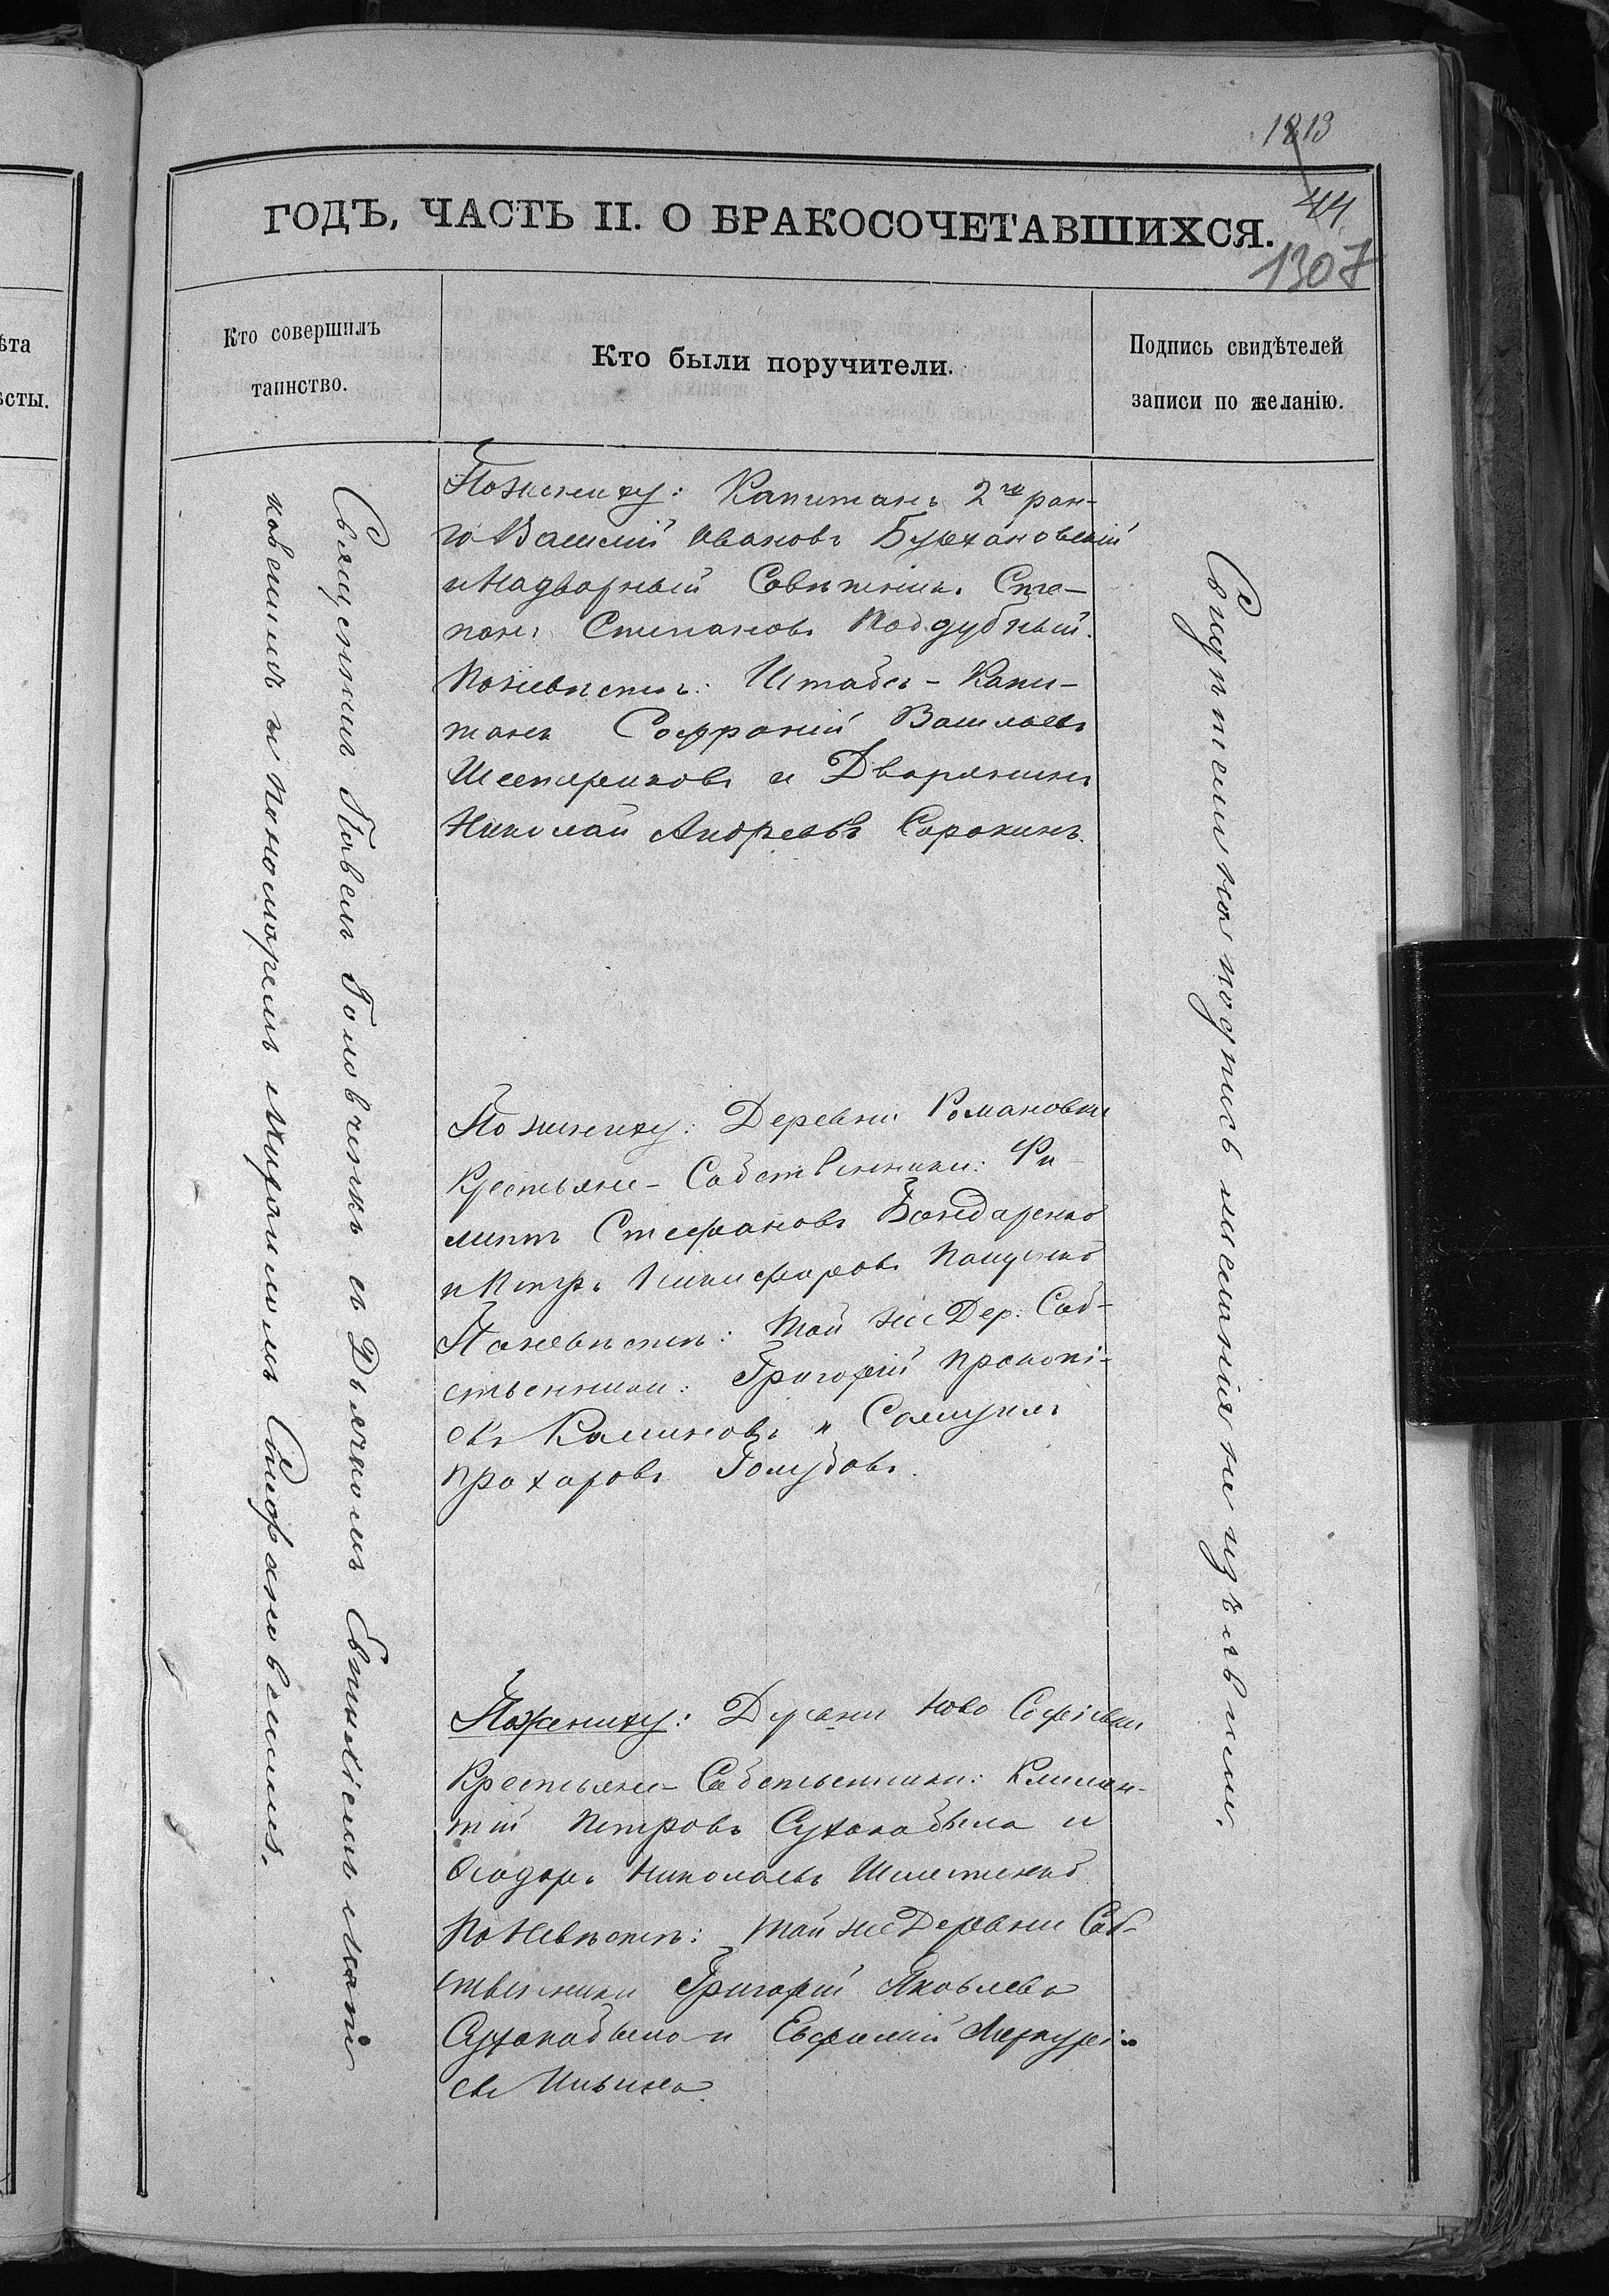 1813
44
1307
ГОДЪ, ЧАСТЬ II. О БРАКОСОЧЕТАВШИХСЯ.
ѣта
ѣсты.
Кто совершилъ
таинство.
Кто были поручители.
Подпись свидѣтелей
записи по желанію.
Священникъ Павелъ Головченко съ Дьячкомъ Евтихіемъ
ковскимъ и Пономаремъ Михаиломъ Стефановскимъ.
По жениху: Капитанъ 2го ран-
га Василій Ивановъ
и Надворный Совѣтникъ Сте-
панъ Степановъ Поддубный.
По невѣстѣ: Штабсъ-Капи-
танъ Софроній Васильевъ
Шестериковъ и Дворянинъ
Николай Андреевъ Сорокинъ.
По жениху: Деревни Романовки
Крестьяне-Собственники: Фи-
липпъ Стефановъ Бондаренко
и Петръ Никифоровъ
По невѣстѣ: Той же Дер. Соб-
ственники: Григорій Прокопі-
евъ Калиновъ и Самуилъ
Прохоровъ Голубовъ.
По жениху: Деревни Ново Софіевки
Крестьяне-Собственники: Климен-
тій Петровъ Сухокобыла и
Ѳеодоръ Николаевъ Шелестенко
По Невѣстѣ: Той же Деревни Соб-
ственники Григорій Яковлевъ
Сухокобыла и Евфимій Меркурі-
евъ Ильинъ.
Свидѣтельская подпись желанія не изъявили.